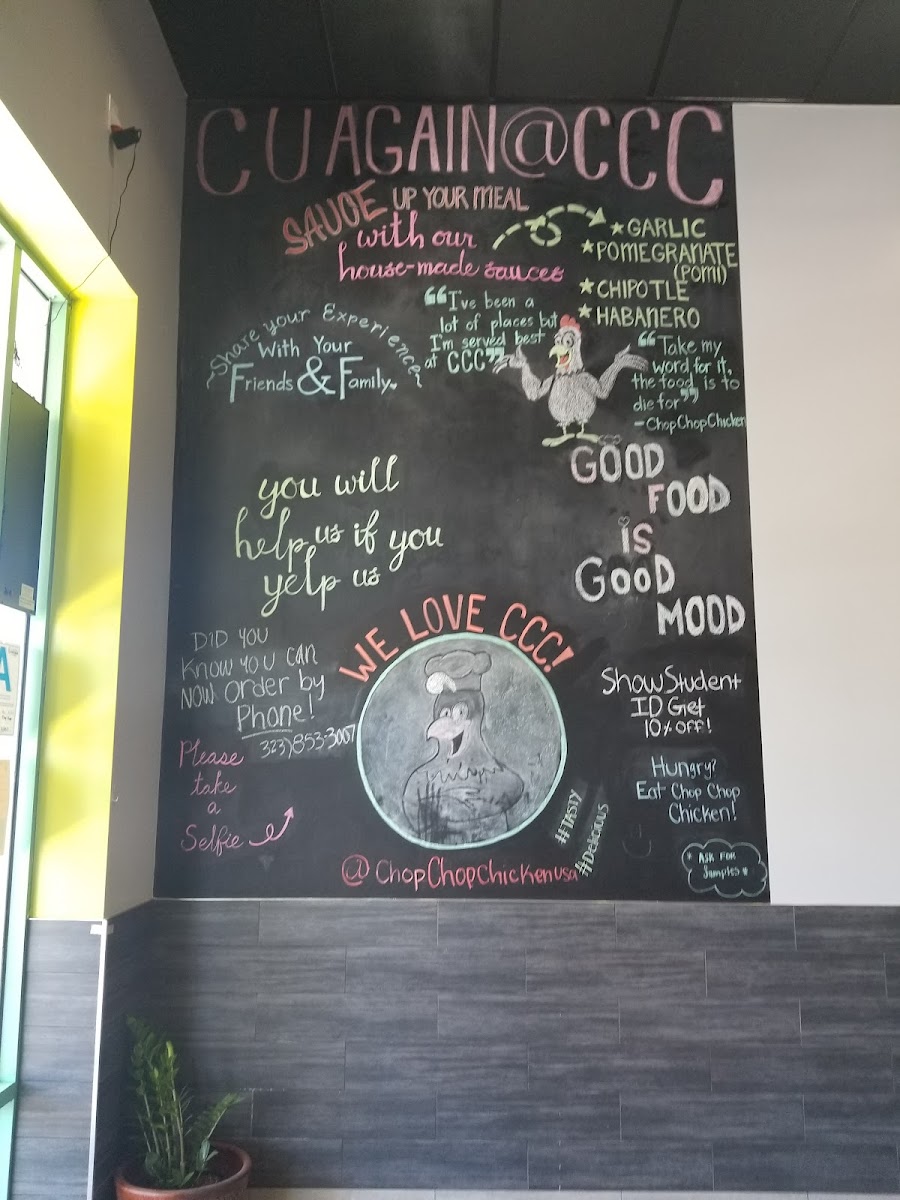 CU AGAIN@CCC
SAUCE UP YOUR MEAL
with our
house-made sauces
★ GARLIC
★ POMEGRANATE
(POMI)
★ CHIPOTLE
★ HABANERO
~Share your Experience~
With Your
Friends & Family
“I've been a
lot of places but
I'm served best
at CCC”
“Take my
word for it,
the food is to
die for”
-ChopChopChicken
GOOD
FOOD
iS
GOOD
MOOD
you will
help us if you
yelp us
WE LOVE CCC!
DID YOU
KNOW YOU CAN
NOW Order by
Phone!
323)853-3007
Please
take
a
Selfie
Show Student
ID Get
10% OFF!
Hungry?
Eat Chop Chop
Chicken!
#TASTY
#Delicious
@ChopChopChickenusa
* ASK FOR
Samples *
A